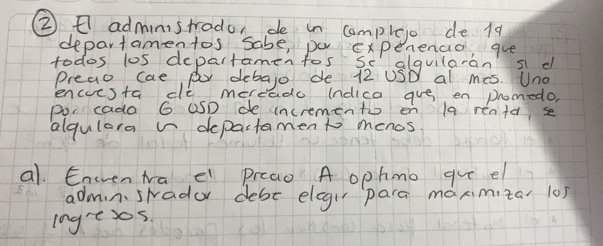 ② El administrador de un complejo de 19
departamentos sabe, por experiencia, que
todos los departamentos se alquilarán si el
precio cae por debajo de 12 USD al mes. Una
encuesta de mercado indica que, en promedo,
por cada 6 USD de incremento en la renta, se
alquilara un departamento menos.
a). Encuentra el precio A optimo que el
administrador debe elegir para maximizar los
ingresos.